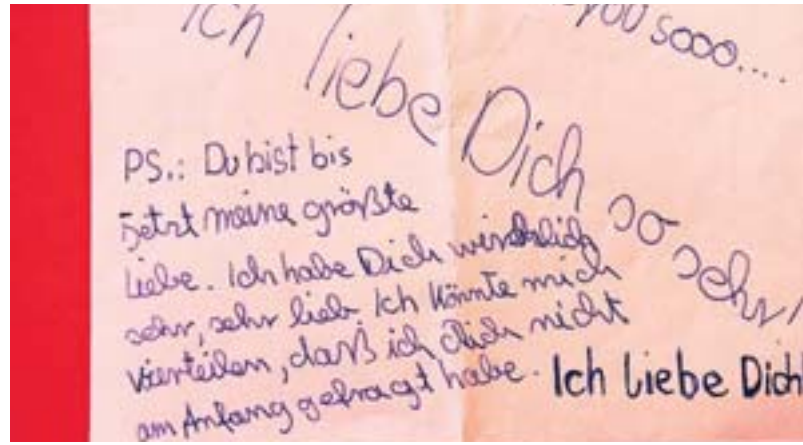 you sooo....
Ich liebe Dich so sehr!
PS.: Du bist bis
jetzt meine größte
Liebe. Ich habe Dich wirklich
sehr, sehr lieb. Ich könnte mich
vierteilen, daß ich dich nicht
am Anfang gefragt habe.
Ich liebe Dich